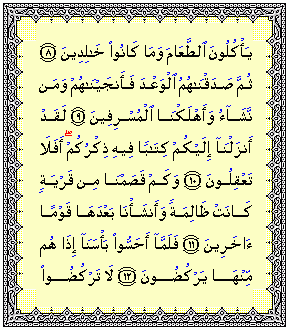 يَأْكُلُونَ ٱلطَّعَامَ وَمَا كَانُوا۟ خَـٰلِدِينَ ﴿٨﴾
ثُمَّ صَدَقْنَـٰهُمُ ٱلْوَعْدَ فَأَنجَيْنَـٰهُمْ وَمَن
نَّشَآءُ وَأَهْلَكْنَا ٱلْمُسْرِفِينَ ﴿٩﴾ لَقَدْ
أَنزَلْنَآ إِلَيْكُمْ كِتَـٰبًا فِيهِ ذِكْرُكُمْ ۖ أَفَلَا
تَعْقِلُونَ ﴿١٠﴾ وَكَمْ قَصَمْنَا مِن قَرْيَةٍ
كَانَتْ ظَالِمَةً وَأَنشَأْنَا بَعْدَهَا قَوْمًا
ءَاخَرِينَ ﴿١١﴾ فَلَمَّآ أَحَسُّوا۟ بَأْسَنَآ إِذَا هُم
مِّنْهَا يَرْكُضُونَ ﴿١٢﴾ لَا تَرْكُضُوا۟